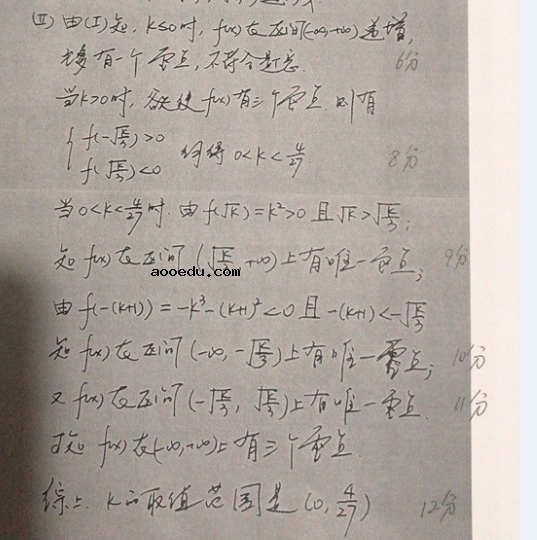 (Ⅱ) 由(Ⅰ)知, k≤0时, f(x)在区间(-∞,+∞)递增,
至多有一个零点, 不符合题意. 6分
当k>0时, 欲使f(x)有三个零点. 则有
{ f(-√(k/3))>0
f(√(k/3))<0 解得 0<k<4/27 8分
当0<k<4/27时. 由f(√k)=k²>0 且√k>√(k/3);
知f(x)在区间(√(k/3), +∞)上有唯一零点; 9分
aooedu.com
由f(-(k+1))=-k³-(k+1)²<0 且-(k+1)<-√(k/3)
知f(x)在区间(-∞, -√(k/3))上有唯一零点; 10分
又f(x)在区间(-√(k/3), √(k/3))上有唯一零点. 11分
故知f(x)在(-∞,+∞)上有三个零点
综上. k的取值范围是(0, 4/27) 12分